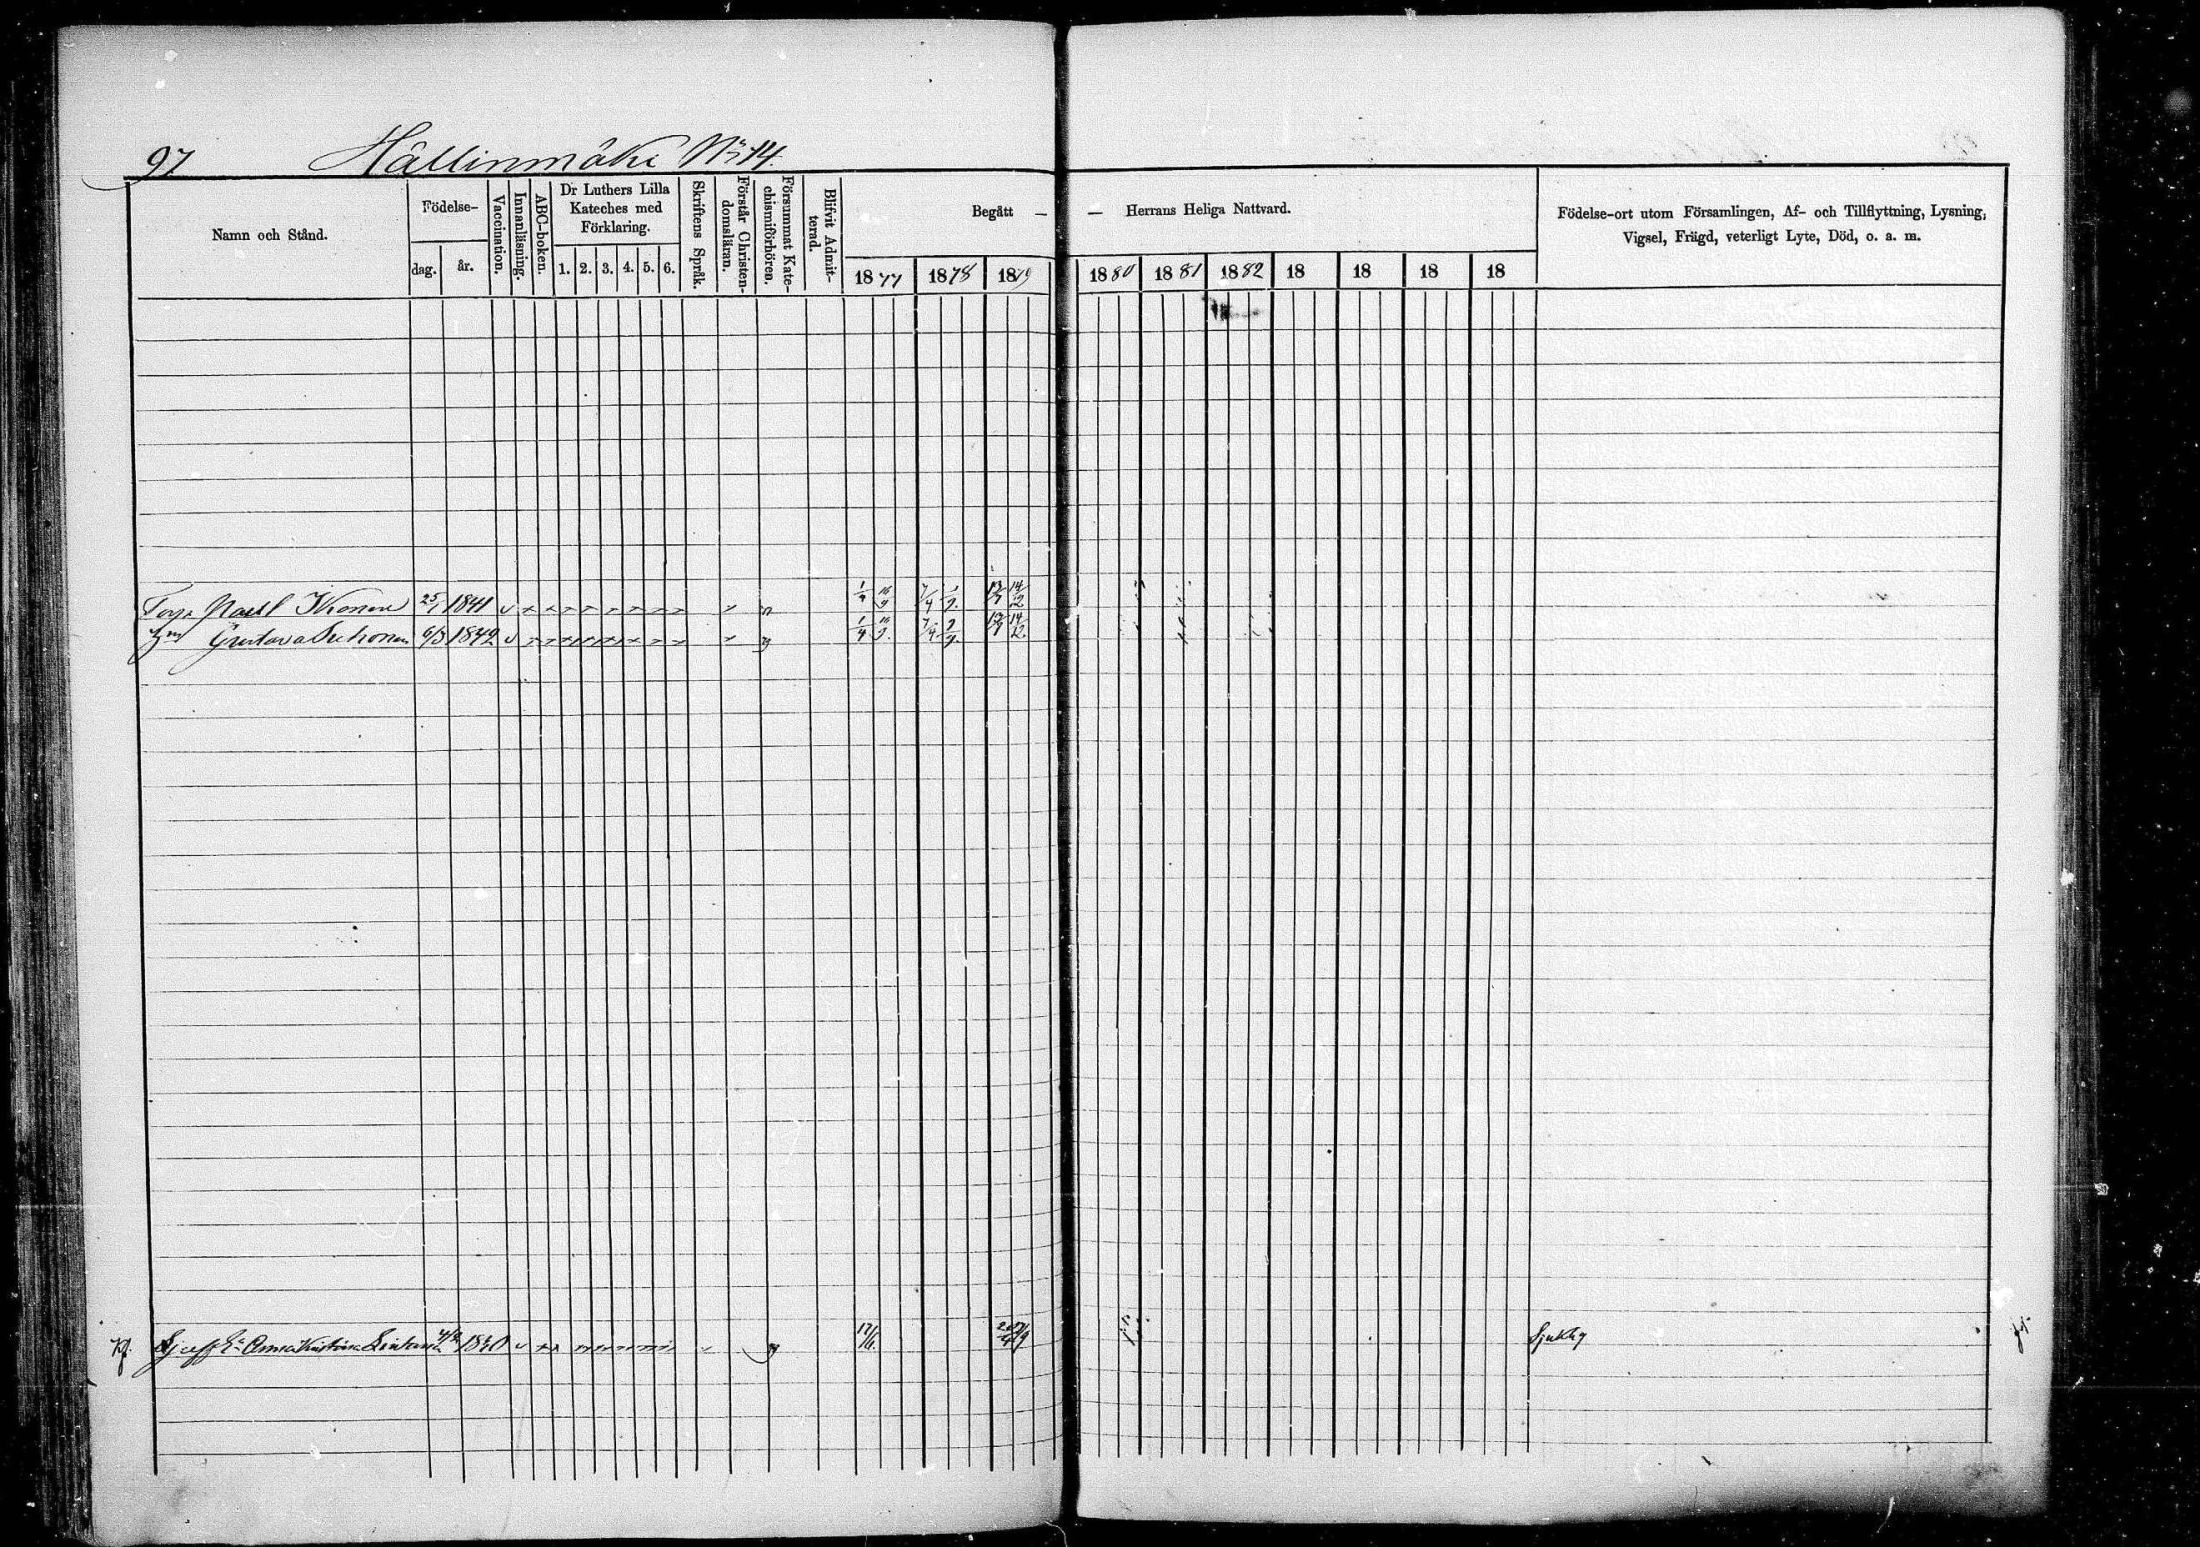 97 Hällinmäki No 14.
Namn och Stånd.
Födelse-
dag.
år.
Vaccination.
Innanläsning.
ABC-boken.
Dr Luthers Lilla
Kateches med
Förklaring.
1. 2. 3. 4. 5. 6.
Skriftens Språk.
Förstår Christen-
domsläran.
Försummat Kate-
chismiförhören.
Blifvit Admit-
terad.
Begått — — Herrans Heliga Nattvard.
1877 1878 1879 1880 1881 1882 18 18 18 18
Födelse-ort utom Församlingen, Af- och Tillflyttning, Lysning,
Vigsel, Frägd, veterligt Lyte, Död, o. a. m.
Torp. 25/1 1841 1/4 16/9 7/4 13/7 14/12
Hu Gustava 6/3 1842 1/4 16/9. 7/4 9/9. 13/7 14/12.
Anna Kristina 1840 17/6. Sjuklig